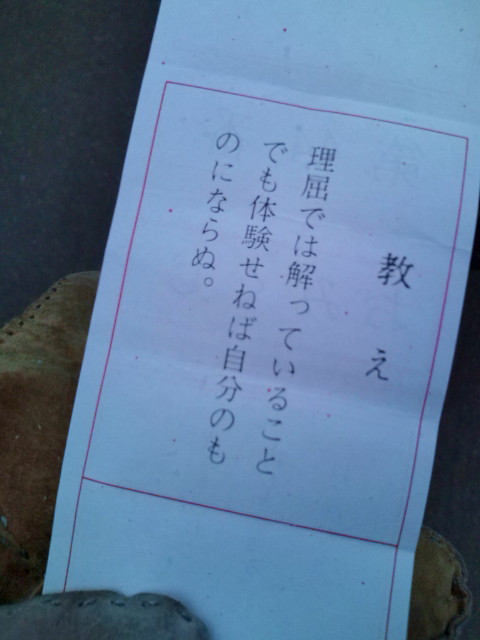 教え
理屈では解っていること
でも体験せねば自分のも
のにならぬ。